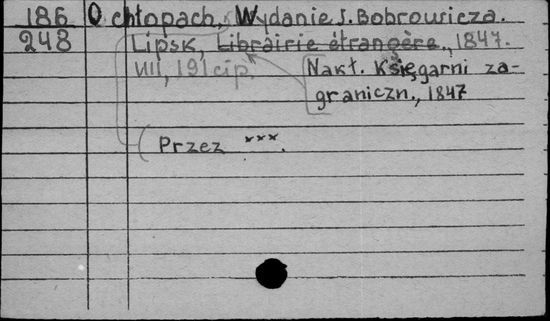 186 O chłopach, Wydanie J. Bobrowicza.
248 Lipsk, Librairie étrangère, 1847.
VIII, 191 cip. Nakł. Księgarni za-
graniczn., 1847
Przez ***.